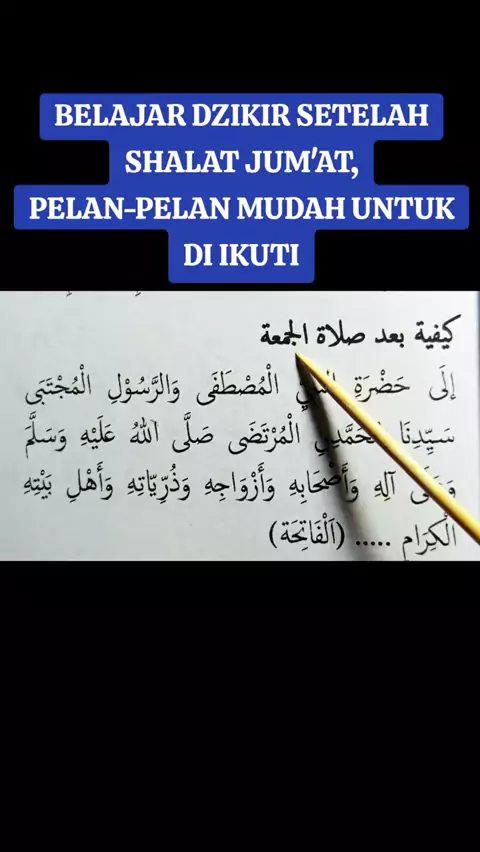 BELAJAR DZIKIR SETELAH
SHALAT JUM'AT,
PELAN-PELAN MUDAH UNTUK
DI IKUTI
كيفية بعد صلاة الجمعة
إلَى حَضْرَةِ الْمُصْطَفَى وَالرَّسُوْلِ الْمُجْتَبَى
سَيِّدِنَا الْمُرْتَضَى صَلَّى اللهُ عَلَيْهِ وَسَلَّمَ
آلِهِ وَأَصْحَابِهِ وَأَزْوَاجِهِ وَذُرِّيَّاتِهِ وَأَهْلِ بَيْتِهِ
الْكِرَامِ ..... (اَلْفَاتِحَة)